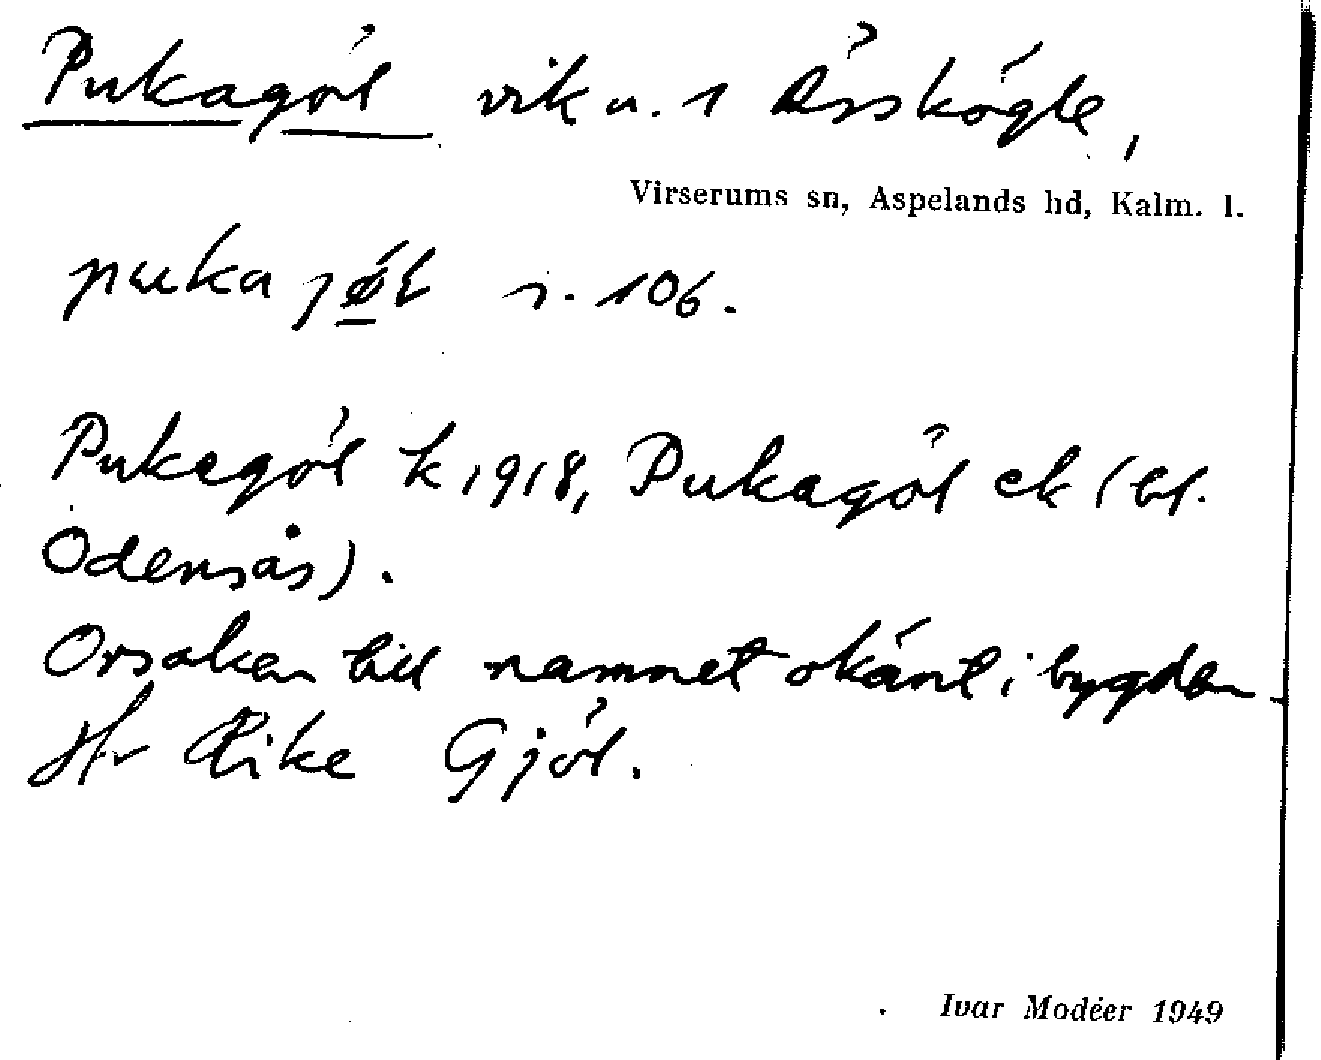 Pukagöl vik u. 1 Össkögle,
Virserums sn, Aspelands hd, Kalm. l.
puka jøl s. 106.
Pukegöl k 1918, Pukagöl ek (bl.
Odensås).
Orsaken till namnet okänt i bygden
Hr Rike Gjöl.
Ivar Modéer 1949